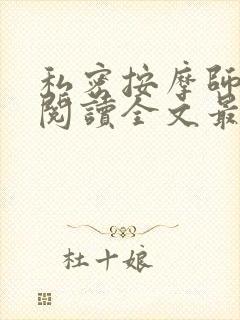 私密按摩師
閱讀全文最
杜十娘